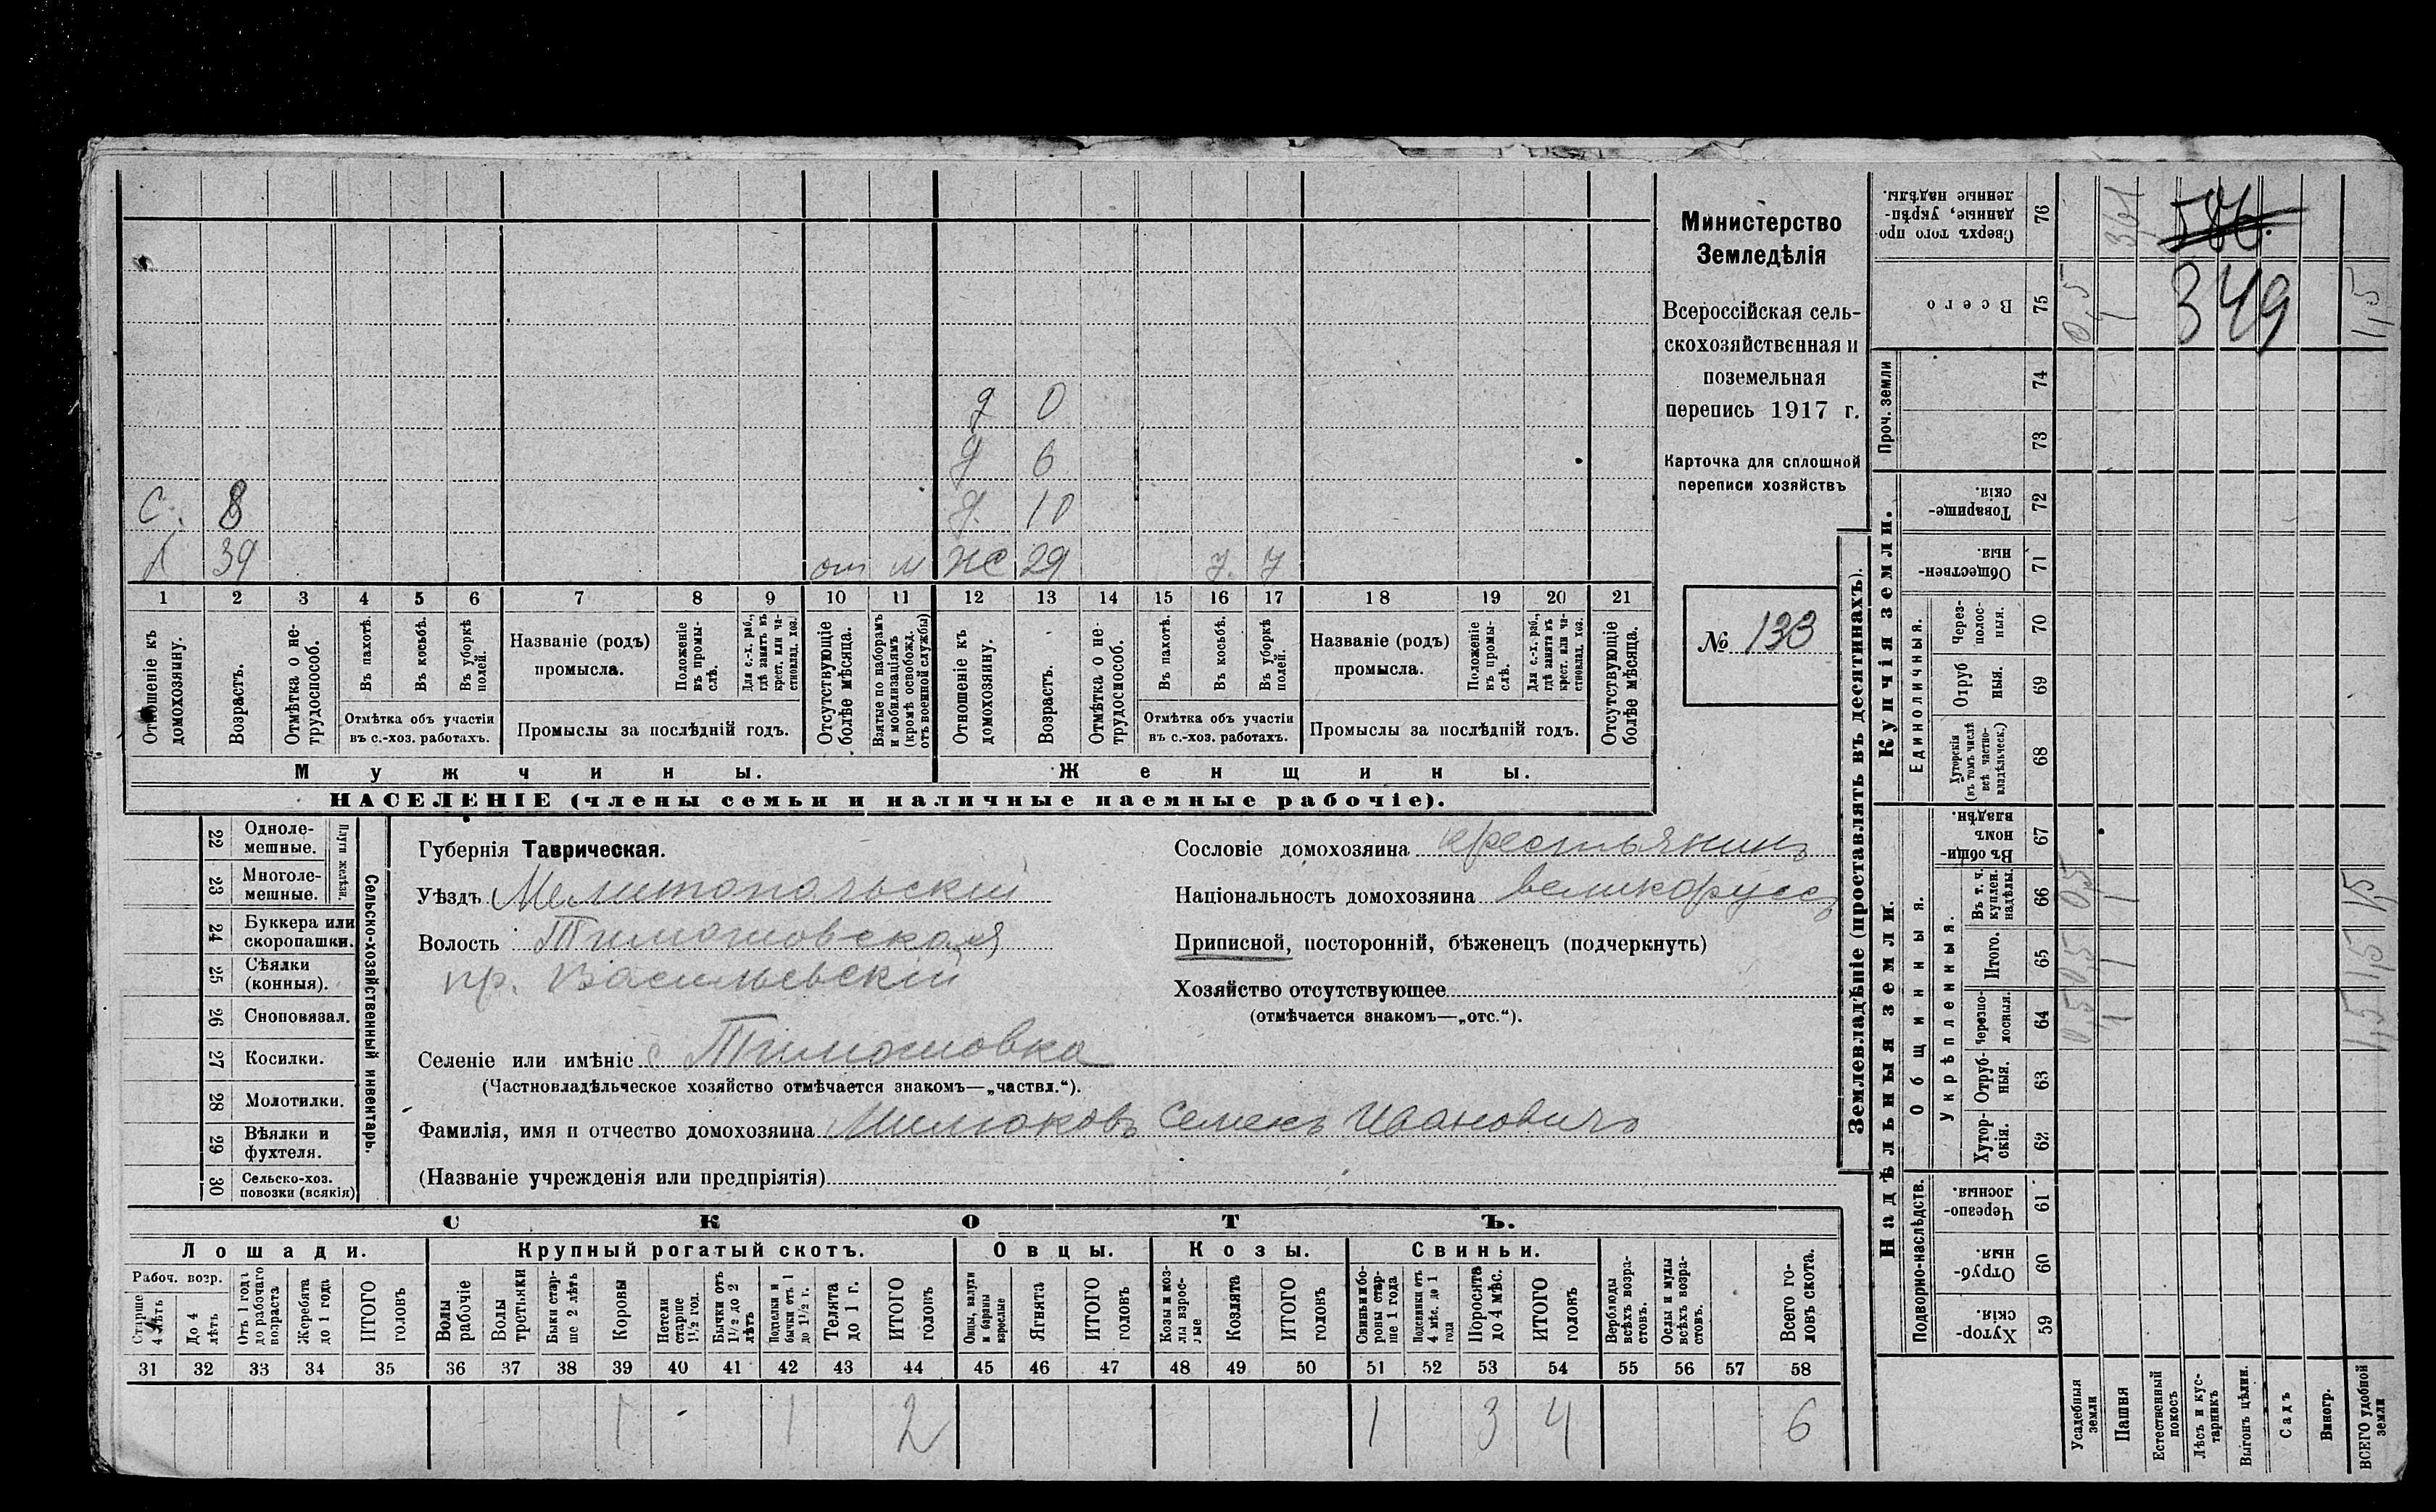 Министерство
Земледѣлія
Всероссійская сель-
скохозяйственная и
поземельная
перепись 1917 г.
Карточка для сплошной
переписи хозяйствъ
№ 133
д 0
д 6
С. 8 д. 10
39 от м 29
1 2 3 4 5 6 7 8 9 10 11 12 13 14 15 16 17 18 19 20 21
Отношеніе къ домохозяину.
Возрастъ.
Отмѣтка о не-трудоспособ.
Въ пахотѣ.
Въ косьбѣ.
Въ уборкѣ полей.
Отмѣтка объ участіи
въ с.-хоз. работахъ.
Названіе (родъ)
промысла.
Положеніе въ промы-слѣ.
Для с.-х. раб., гдѣ занятъ въ крест. или ча-стновлад. хоз.
Промыслы за послѣдній годъ.
Отсутствующіе болѣе мѣсяца.
Взятые по наборамъ и мобилизаціямъ (кромѣ освобожд. отъ военной службы)
Отношеніе къ домохозяину.
Возрастъ.
Отмѣтка о не-трудоспособ.
Въ пахотѣ.
Въ косьбѣ.
Въ уборкѣ полей.
Отмѣтка объ участіи
въ с.-хоз. работахъ.
Названіе (родъ)
промысла.
Положеніе въ промы-слѣ.
Для с.-х. раб., гдѣ занята въ крест. или ча-стновлад. хоз.
Промыслы за послѣдній годъ.
Отсутствующіе болѣе мѣсяца.
Мужчины. Женщины.
НАСЕЛЕНІЕ (члены семьи и наличные наемные рабочіе).
Сельско-хозяйственный инвентарь.
Плуги желѣзн.
22 Одноле-мешные.
23 Многоле-мешные.
24 Буккера или скоропашки.
25 Сѣялки (конныя).
26 Сноповязал.
27 Косилки.
28 Молотилки.
29 Вѣялки и фухтеля.
30 Сельско-хоз. повозки (всякія)
Губернія Таврическая.
Уѣздъ Мелитопольскій
Волость Тимошовская
пр. Васильевскій
Селеніе или имѣніе с Тимошовка
(Частновладѣльческое хозяйство отмѣчается знакомъ—„частвл.“).
Фамилія, имя и отчество домохозяина Милюковъ Семенъ Ивановичъ
(Названіе учрежденія или предпріятія)
Сословіе домохозяина крестьянинъ
Національность домохозяина великоруссъ
Приписной, посторонній, бѣженецъ (подчеркнуть)
Хозяйство отсутствующее
(отмѣчается знакомъ—„отс.“).
СКОТЪ.
Лошади. Крупный рогатый скотъ. Овцы. Козы. Свиньи.
Рабоч. возр.
Старше 4 лѣтъ
До 4 лѣтъ
Отъ 1 года до рабочаго возраста
Жеребята до 1 года
ИТОГО головъ
Волы рабочіе
Волы третьяки
Быки стар-ше 2 лѣтъ
Коровы
Нетели старше 1½ год.
Бычки отъ 1½ до 2 лѣтъ
Подтелки и бычки отъ 1 до 1½ г.
Телята до 1 г.
ИТОГО головъ
Овцы, валухи и бараны взрослые
Ягнята
ИТОГО головъ
Козы и коз-лы взрос-лые
Козлята
ИТОГО головъ
Свиньи и бо-ровы стар-ше 1 года
Подсвинки отъ 4 мѣс. до 1 года
Поросята до 4 мѣс.
ИТОГО головъ
Верблюды всѣхъ возра-стовъ.
Ослы и мулы всѣхъ возра-стовъ.
Всего го-ловъ скота.
31 32 33 34 35 36 37 38 39 40 41 42 43 44 45 46 47 48 49 50 51 52 53 54 55 56 57 58
1 1 2 1 3 4 6
Землевладѣніе (проставлять въ десятинахъ).
Надѣльныя земли. Купчія земли. Проч. земли
Подворно-наслѣдств.
Общинныя.
Укрѣпленныя.
Единоличныя.
59 Хутор-скія.
60 Отруб-ныя.
61 Черезпо-лосныя.
62 Хутор-скія.
63 Отруб-ныя.
64 Черезпо-лосныя. 0,5 1 1,5
65 Итого. 0,5 1 1,5
66 Въ т. ч. куплен. надѣлы. 0,5 1 1,5
67 Въ общи-номъ владѣн.
68 Хуторскія (въ томъ числѣ всѣ частно-владѣльческ.)
69 Отруб ныя.
70 Через-полос-ныя.
71 Обществен-ныя.
72 Товарище-скія.
73
74
75 Всего 0,5 1 349 1,5
76 Сверхъ того про-данные, укрѣп-ленные надѣлы. 361 586.
Усадебныя земли
Пашня
Естественный покосъ
Лѣсъ и кус-тарникъ
Выгонъ цѣлин.
Садъ
Виногр.
ВСЕГО удобной земли